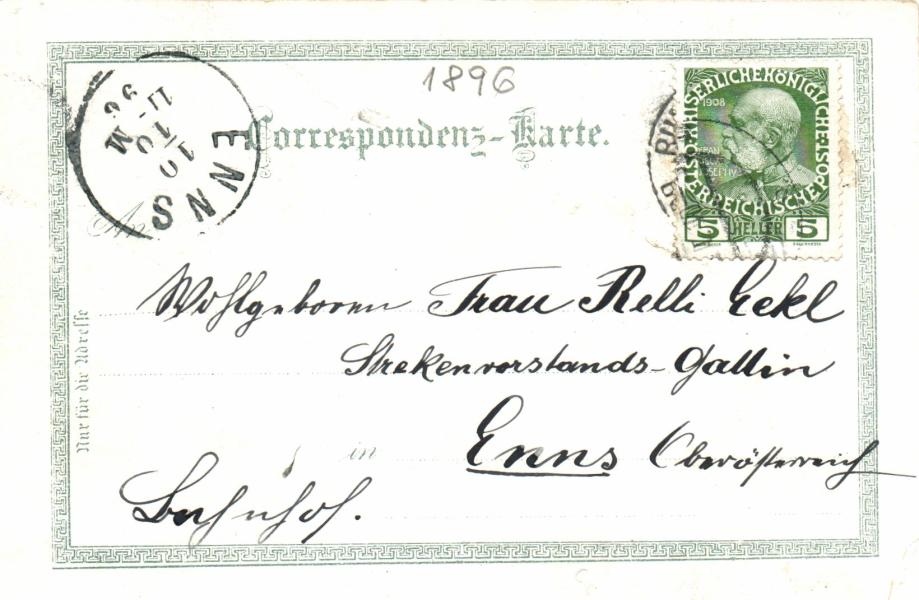 1896
Correspondenz-Karte.
ENNS
10 10 M
11 96
KAISERLICHEKÖNIGLICHE
ÖSTERREICHISCHE POST
1908
FRANZ
JOSEPH I
5 HELLER 5
An
Wohlgeboren Frau Relli Eckl
Strekenvorstands-Gattin
in Enns Oberösterreich
Bahnhof.
Nur für die Adresse